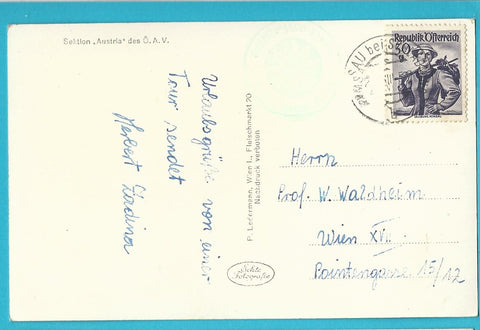 Sektion „Austria" des Ö. A. V.
Urlaubsgrüße von einer
Tour sendet
Herbert Zadina
P. Ledermann, Wien I., Fleischmarkt 20
Nachdruck verboten
Echte
Fotografie
RAMSAU bei
Republik Österreich
30
g
Herrn
Prof. W. Waldheim
Wien XVII.
Pointengasse 15/12